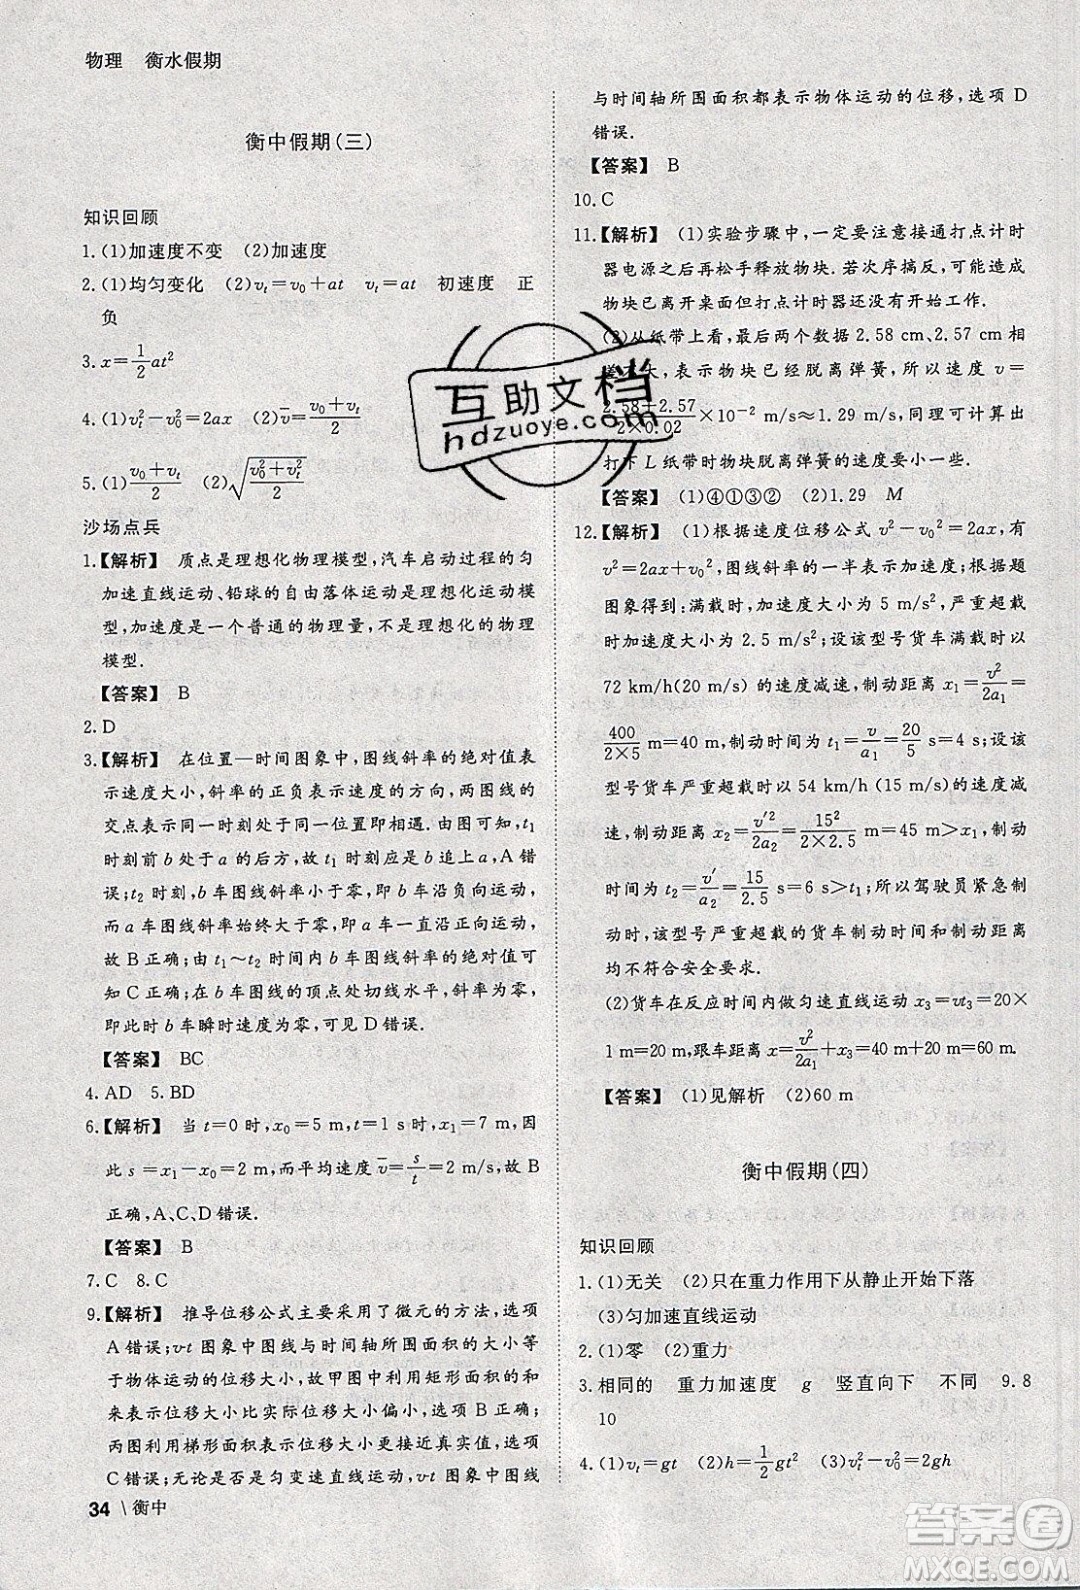 物理 衡水假期
衡中假期(三)
知识回顾
1.(1)加速度不变 (2)加速度
2.(1)均匀变化 (2)vₜ=v₀+at vₜ=at 初速度 正
负
3.x=1/2at²
4.(1)vₜ²-v₀²=2ax (2)v̄=(v₀+vₜ)/2
5.(1)(v₀+vₜ)/2 (2)√((v₀²+vₜ²)/2)
沙场点兵
1.【解析】 质点是理想化物理模型,汽车启动过程的匀
加速直线运动、铅球的自由落体运动是理想化运动模
型,加速度是一个普通的物理量,不是理想化的物理
模型.
【答案】 B
2.D
3.【解析】 在位置—时间图象中,图线斜率的绝对值表
示速度大小,斜率的正负表示速度的方向,两图线的
交点表示同一时刻处于同一位置即相遇.由图可知,t₁
时刻前b处于a的后方,故t₁时刻应是b追上a,A错
误;t₂时刻,b车图线斜率小于零,即b车沿负向运动,
而a车图线斜率始终大于零,即a车一直沿正向运动,
故B正确;由t₁~t₂时间内b车图线斜率的绝对值可
知C正确;在b车图线的顶点处切线水平,斜率为零,
即此时b车瞬时速度为零,可见D错误.
【答案】 BC
4.AD 5.BD
6.【解析】 当t=0时,x₀=5 m,t=1 s时,x₁=7 m,因
此s=x₁-x₀=2 m,而平均速度v̄=s/t=2 m/s,故B
正确,A、C、D错误.
【答案】 B
7.C 8.C
9.【解析】 推导位移公式主要采用了微元的方法,选项
A错误;v-t图象中图线与时间轴所围面积的大小等
于物体运动的位移大小,故甲图中利用矩形面积的和
来表示位移大小比实际位移大小偏小,选项B正确;
丙图利用梯形面积表示位移大小更接近真实值,选项
C错误;无论是否是匀变速直线运动,v-t图象中图线
34 \ 衡中
与时间轴所围面积都表示物体运动的位移,选项D
错误.
【答案】 B
10.C
11.【解析】 (1)实验步骤中,一定要注意接通打点计时
器电源之后再松手释放物块.若次序搞反,可能造成
物块已离开桌面但打点计时器还没有开始工作.
(2)从纸带上看,最后两个数据2.58 cm、2.57 cm相
差不大,表示物块已经脱离弹簧,所以速度v=
(2.58+2.57)/(2×0.02)×10⁻² m/s≈1.29 m/s,同理可计算出
打下L纸带时物块脱离弹簧的速度要小一些.
【答案】 (1)④①③② (2)1.29 M
12.【解析】 (1)根据速度位移公式v²-v₀²=2ax,有
v²=2ax+v₀²,图线斜率的一半表示加速度;根据题
图象得到:满载时,加速度大小为5 m/s²,严重超载
时加速度大小为2.5 m/s²;设该型号货车满载时以
72 km/h(20 m/s)的速度减速,制动距离x₁=v²/2a₁=
400/(2×5) m=40 m,制动时间为t₁=v/a₁=20/5 s=4 s;设该
型号货车严重超载时以54 km/h(15 m/s)的速度减
速,制动距离x₂=v′²/2a₂=15²/(2×2.5) m=45 m>x₁,制动
时间为t₂=v′/a₂=15/2.5 s=6 s>t₁;所以驾驶员紧急制
动时,该型号严重超载的货车制动时间和制动距离
均不符合安全要求.
(2)货车在反应时间内做匀速直线运动x₃=vt₃=20×
1 m=20 m,跟车距离x=v²/2a₁+x₃=40 m+20 m=60 m.
【答案】 (1)见解析 (2)60 m
衡中假期(四)
知识回顾
1.(1)无关 (2)只在重力作用下从静止开始下落
(3)匀加速直线运动
2.(1)零 (2)重力
3.相同的 重力加速度 g 竖直向下 不同 9.8
10
4.(1)vₜ=gt (2)h=1/2gt² (3)vₜ²-v₀²=2gh
互助文档
hdzuoye.com
答案圈
MXQE.COM